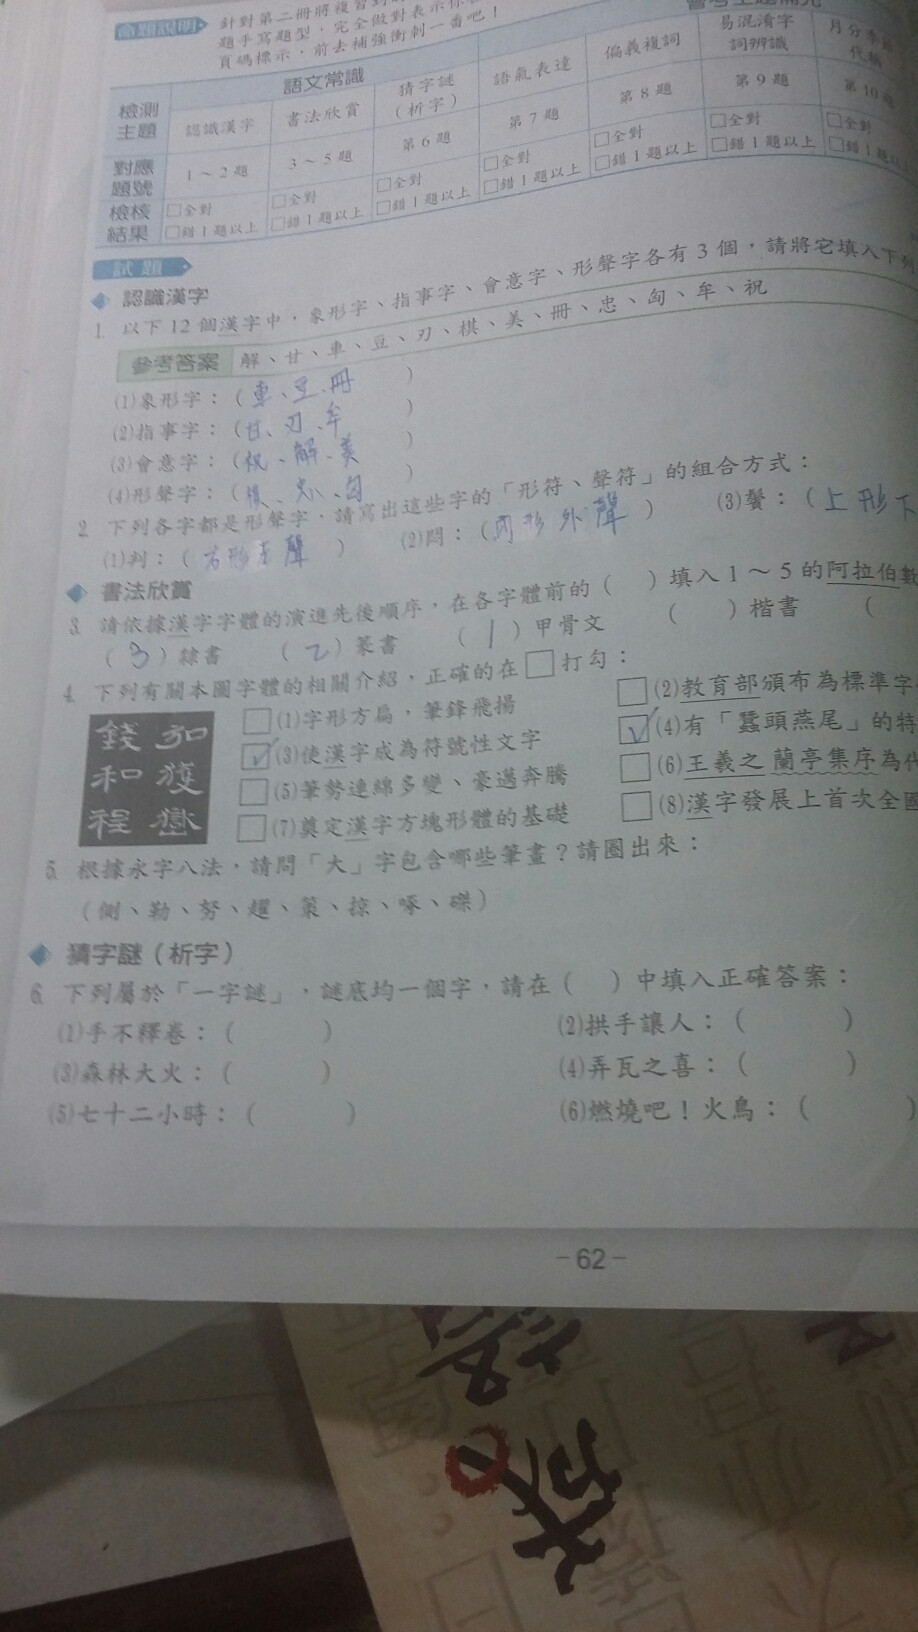 命題說明
針對第二冊將複習到的
題手寫題型，完全做對表示你
頁碼標示，前去補強衝刺一番吧！
語文常識
檢測主題 認識漢字 書法欣賞 猜字謎（析字） 語氣表達 偏義複詞 易混淆字詞辨識 月分季節代稱
對應題號 1～2題 3～5題 第6題 第7題 第8題 第9題 第10題
檢核結果 □全對 □全對 □全對 □全對 □全對 □全對 □全對
□錯1題以上 □錯1題以上 □錯1題以上 □錯1題以上 □錯1題以上 □錯1題以上 □錯1題以上
試題
認識漢字
1. 以下12個漢字中，象形字、指事字、會意字、形聲字各有3個，請將它填入下列
參考答案 解、甘、車、豆、刃、棋、美、冊、忠、匈、牟、祝
(1)象形字：（車、豆、冊）
(2)指事字：（甘、刃、牟）
(3)會意字：（祝、解、美）
(4)形聲字：（棋、忠、匈）
2. 下列各字都是形聲字，請寫出這些字的「形符、聲符」的組合方式：
(1)判：（右形左聲） (2)悶：（內形外聲） (3)鬢：（上形下
書法欣賞
3. 請依據漢字字體的演進先後順序，在各字體前的（ ）填入1～5的阿拉伯數
（3）隸書 （2）篆書 （1）甲骨文 （ ）楷書 （
4. 下列有關本圖字體的相關介紹，正確的在□打勾：
□(1)字形方扁，筆鋒飛揚 □(2)教育部頒布為標準字
☑(3)使漢字成為符號性文字 ☑(4)有「蠶頭燕尾」的特
□(5)筆勢連綿多變、豪邁奔騰 □(6)王羲之蘭亭集序為代
□(7)奠定漢字方塊形體的基礎 □(8)漢字發展上首次全國
5. 根據永字八法，請問「大」字包含哪些筆畫？請圈出來：
（側、勒、努、趯、策、掠、啄、磔）
猜字謎（析字）
6. 下列屬於「一字謎」，謎底均一個字，請在（ ）中填入正確答案：
(1)手不釋卷：（ ） (2)拱手讓人：（ ）
(3)森林大火：（ ） (4)弄瓦之喜：（ ）
(5)七十二小時：（ ） (6)燃燒吧！火鳥：（ ）
－62－